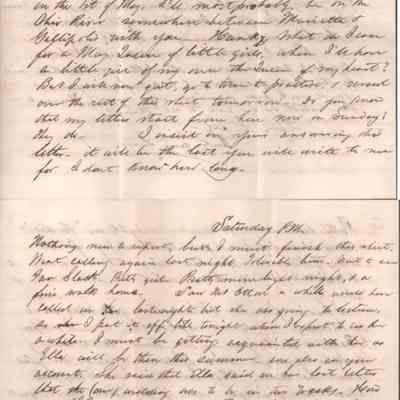 on the 1st of May, I'll most probably be on the
Ohio River somewhere between Marietta &
Gallipolis with you. Hardly what do I care
for a May Queen of little girls, when I'll have
a little girl of my own the Queen of my heart?
But I will now quit, go to town to practice, &
over the rest of this sheet tomorrow. Do you know
that my letters start from here now on Sunday?
they do. I insist on your answering this
letter. it will be the last you will write to me
for I don't know how long.
Saturday P.M.
Nothing new to report, but I must finish this sheet.
Went calling again last night
fine walk home. Saw a while would have
called on her last night but she was going to lecture,
so I put it off till tonight when I expect to see her
a while. I must be getting acquainted with her as
Ella will be there this summer and also on your
account. She said that Ella said in her last letter
that the wedding was to be in two weeks. How